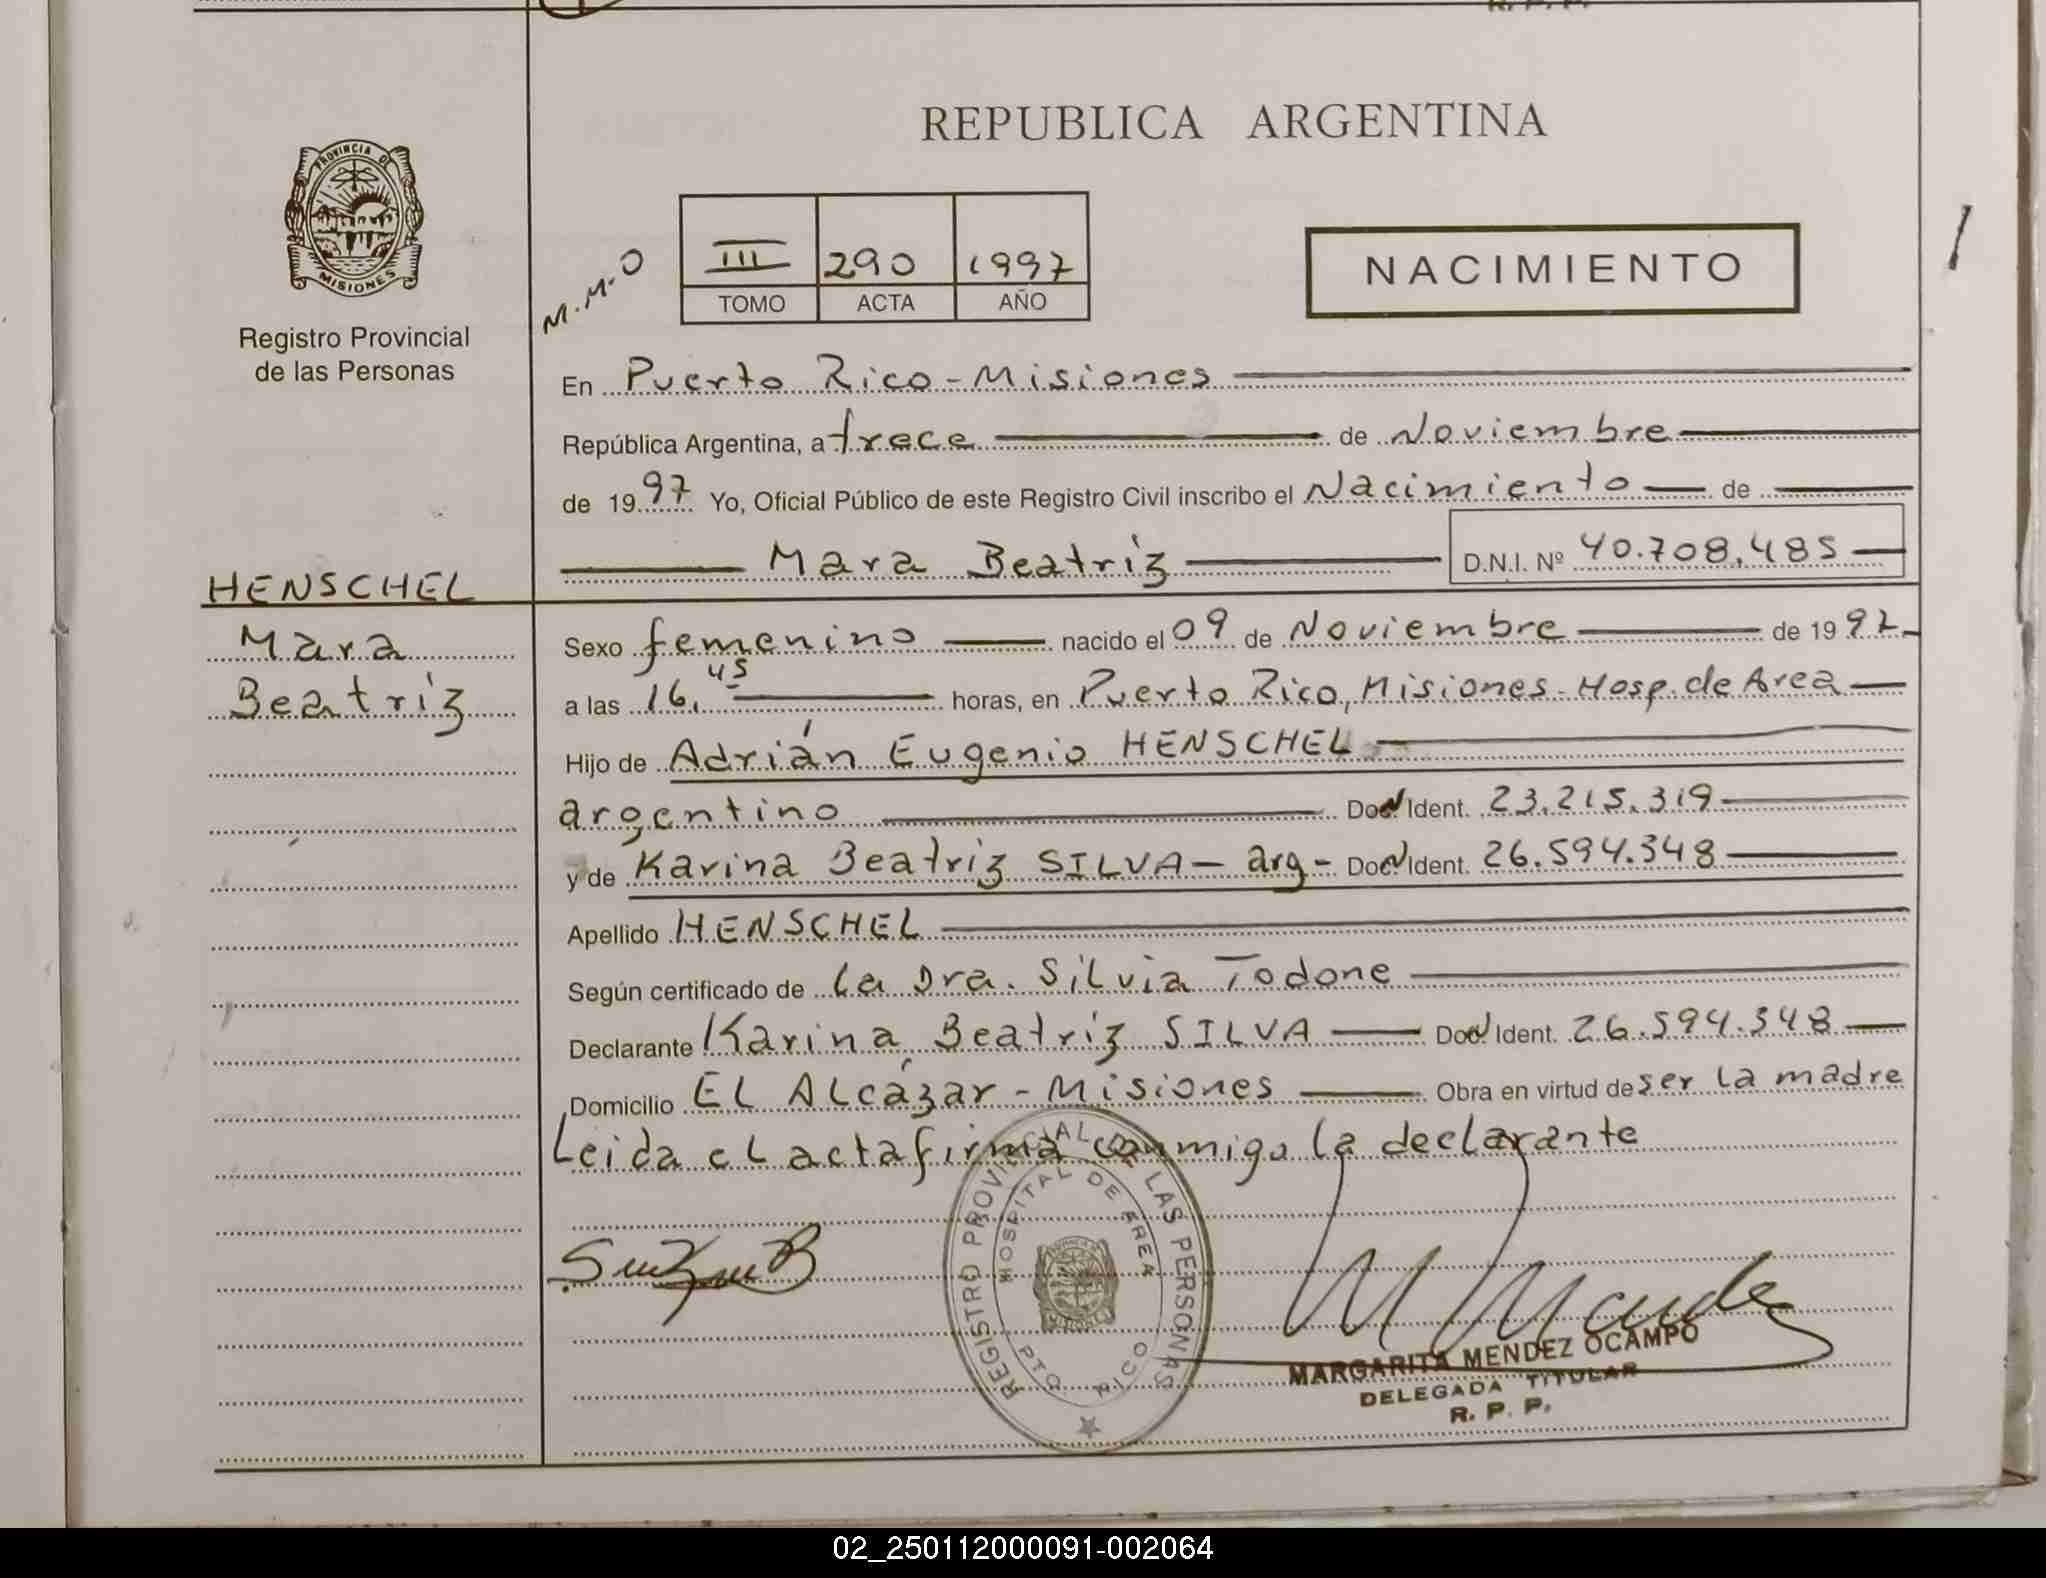 REPUBLICA ARGENTINA
PROVINCIA DE MISIONES
Registro Provincial
de las Personas
M.M.O
III 290 1997
TOMO ACTA AÑO
NACIMIENTO
En Puerto Rico - Misiones
República Argentina, a trece de Noviembre
de 1997 Yo, Oficial Público de este Registro Civil inscribo el Nacimiento de
Mara Beatríz D.N.I. Nº 40.708.485
HENSCHEL
Mara
Beatríz
Sexo femenino nacido el 09 de Noviembre de 1997
a las 16,45 horas, en Puerto Rico, Misiones - Hosp. de Area
Hijo de Adrián Eugenio HENSCHEL
argentino Doc. Ident. 23.215.319
y de Karina Beatríz SILVA - arg - Doc. Ident. 26.594.348
Apellido HENSCHEL
Según certificado de La Dra. Silvia Todone
Declarante Karina Beatríz SILVA Doc. Ident. 26.594.348
Domicilio EL ALcázar - Misiones Obra en virtud de ser la madre
Leida el acta firma conmigo la declarante
REGISTRO PROVINCIAL DE LAS PERSONAS
HOSPITAL DE AREA
PTO. RICO
MARGARITA MENDEZ OCAMPO
DELEGADA TITULAR
R. P. P.
02_250112000091-002064